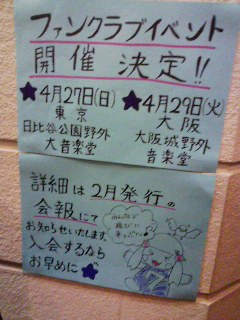 ファンクラブイベント
開催 決定!!
★4月27日(日)
東京
日比谷公園野外
大音楽堂
★4月29日(火)
大阪
大阪城野外
音楽堂
詳細は2月発行の
会報にて
お知らせいたします。
入会するなら
お早めに★
みんなで
遊びに